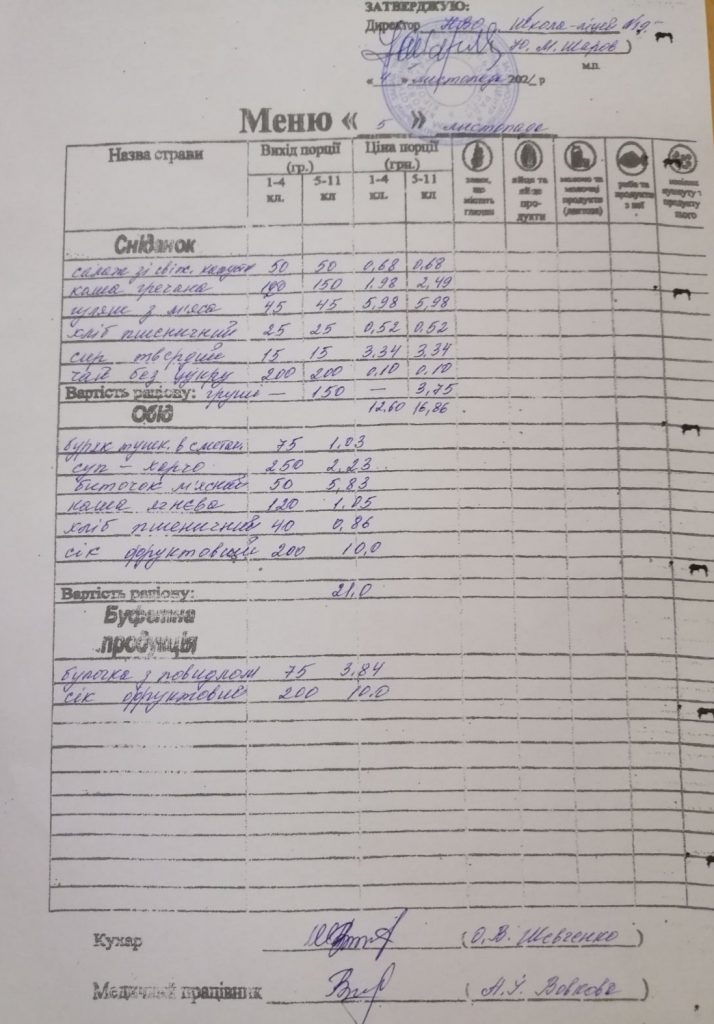 ЗАТВЕРДЖУЮ:
Директор НВО Школа-ліцей №19
Ю. М. Шаров )
м.п.
« 4 » листопада 2021 р
Меню « 5 » листопада
Назва страви Вихід порції (гр.) Ціна порції (грн.)
1-4 кл. 5-11 кл. 1-4 кл. 5-11 кл
злаки, що містять глютен
яйця та яйце продукти
молоко та молочні продукти (лактоза)
риба та продукти з неї
Сніданок
салат зі свіж. капусти 50 50 0,68 0,68
каша гречана 100 150 1.98 2,49
гуляш з м'яса 45 45 5,98 5,98
хліб пшеничний 25 25 0,52 0,52
сир твердий 15 15 3,34 3,34
чай без цукру 200 200 0,10 0,10
Вартість раціону: груша — 150 — 3,75
Обід 12.60 16,86
буряк тушк. в сметан. 75 1,03
суп - харчо 250 2,23
биточок м'ясний 50 5,83
каша ячнева 120 1.05
хліб пшеничний 40 0,86
сік фруктовий 200 10,0
Вартість раціону: 21,0
Буфетна
продукція
булочка з повидлом 75 3,84
сік фруктовий 200 10.0
Кухар ( О. В. Шевченко )
Медичний працівник ( Вовкова )